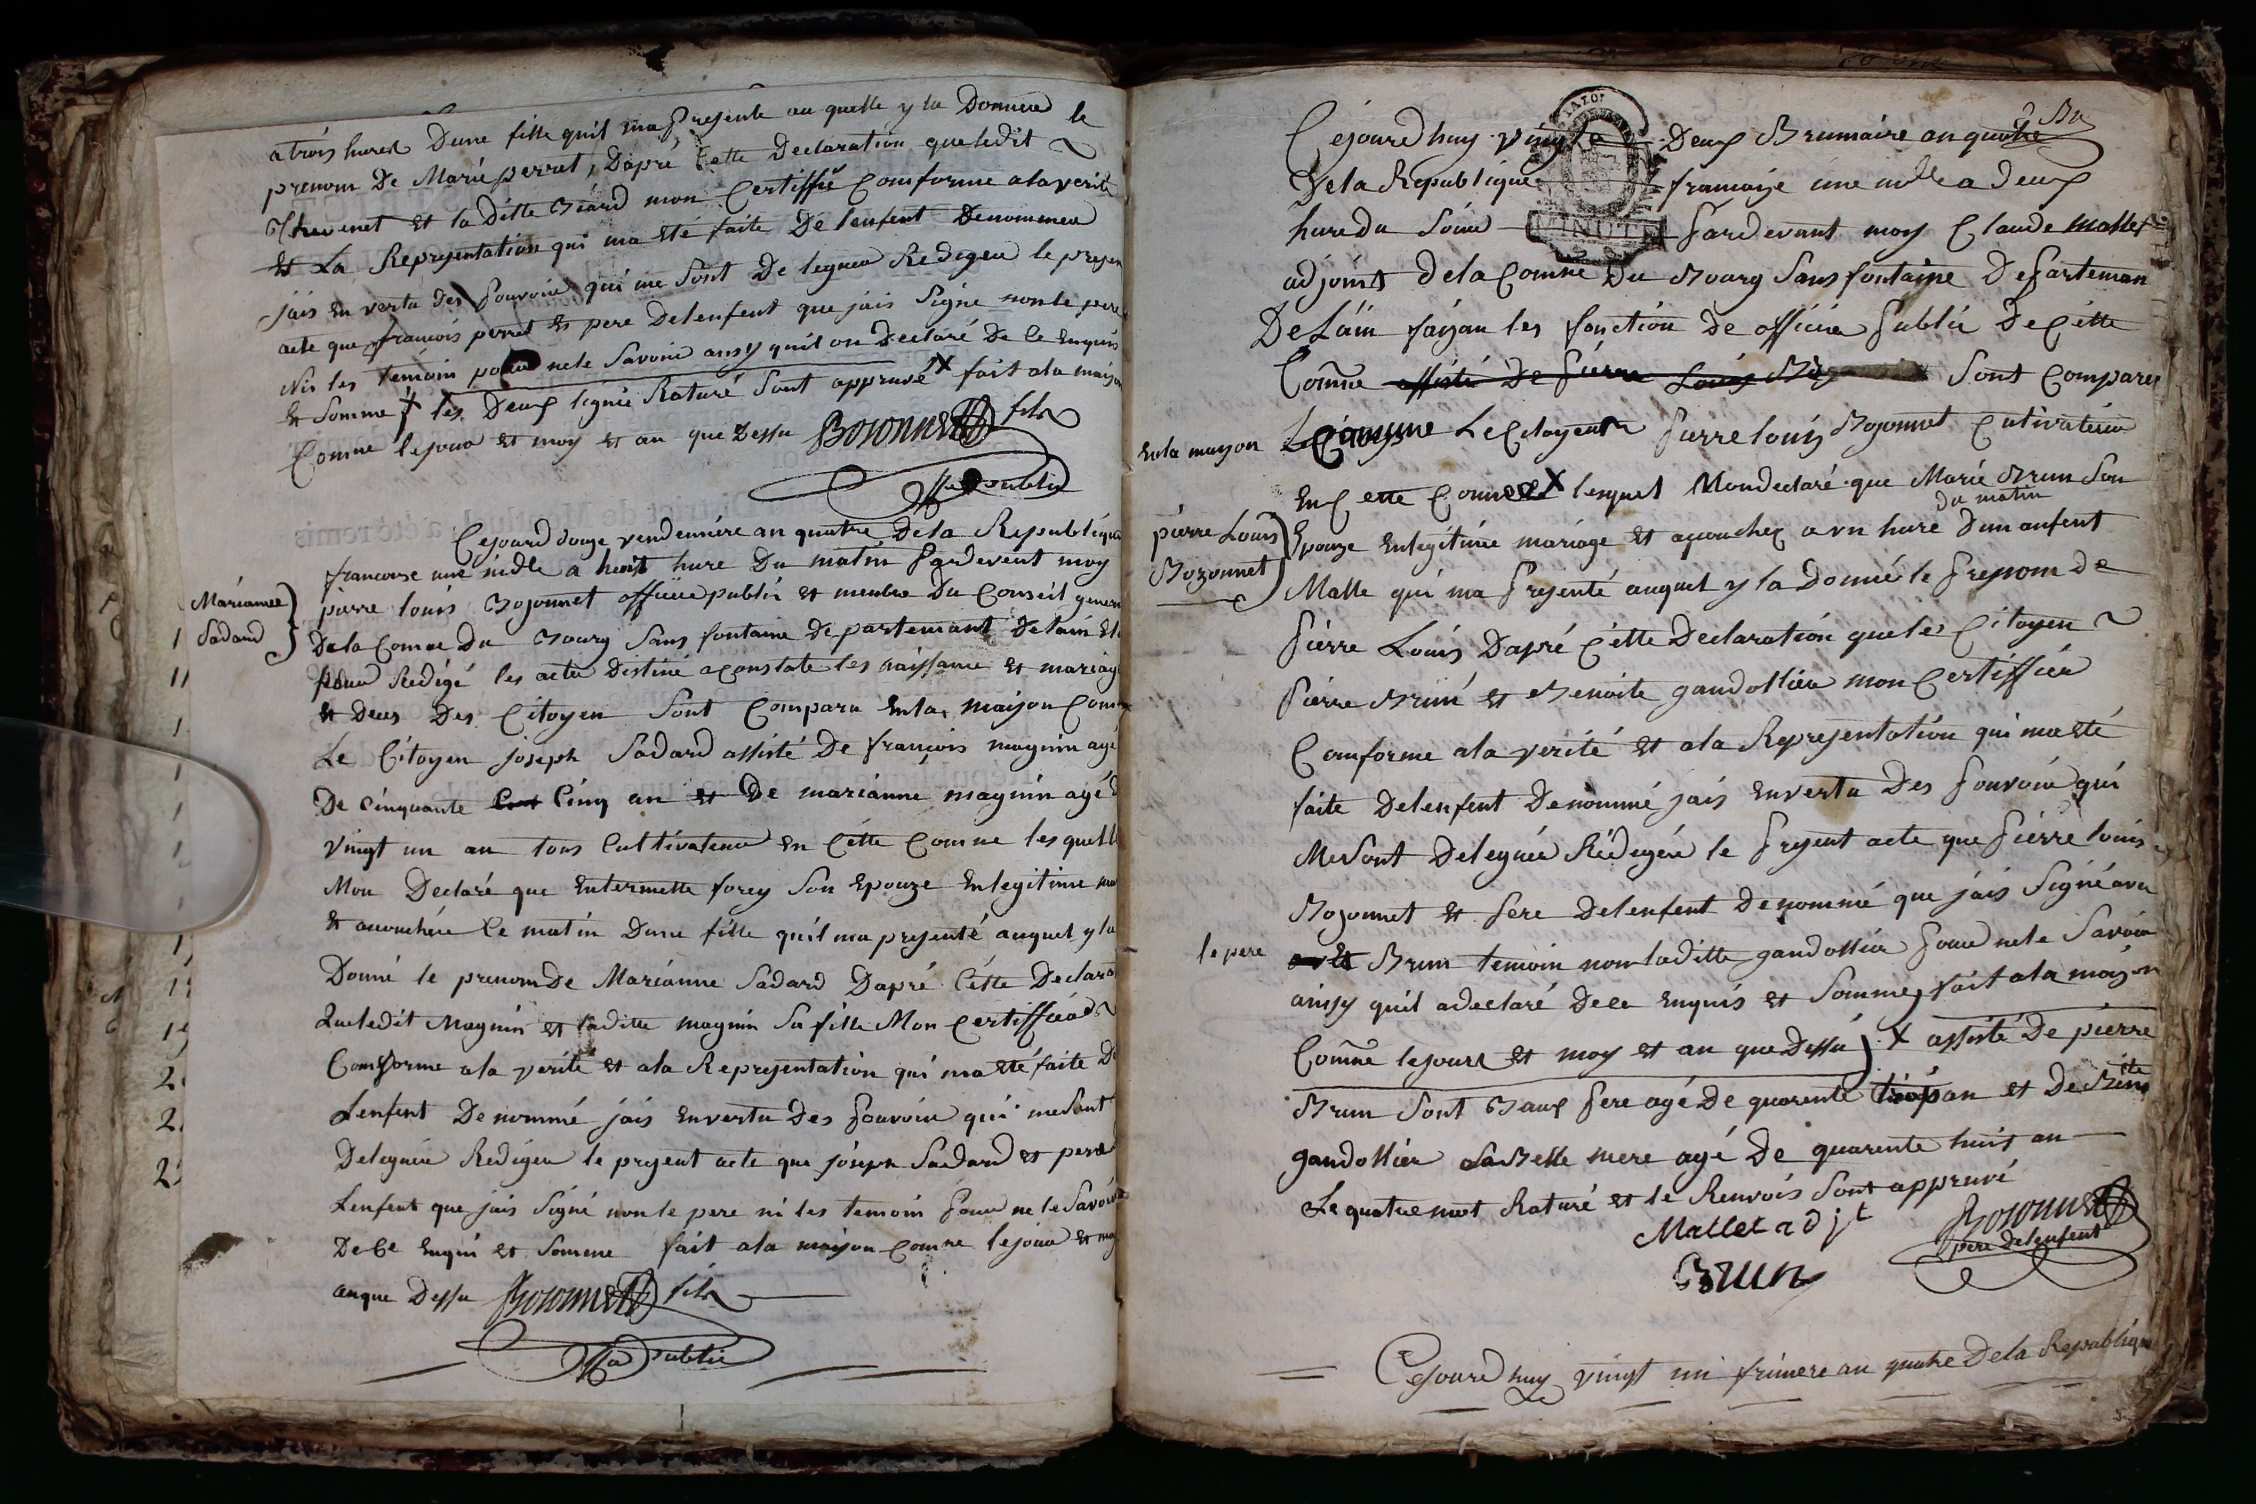 atrois hures Dune fille quil ma presente au quelle y la Donnera le
prenom De Marie perret, Dapré Cette Declaration queledit
Thevenet et la Ditte Biard mon Certiffié Comforme alaverité
et La Representation qui ma eté faite De lenfent Denommea
jais en vertu des pouvoir qui me sont De legueu Redigeu le presen
acte que françois perret et pere Delenfent que jais Signé nonle pere
Nis les temoin pour nele Savoir ansy quil on Declaré De ce Enquis
et Somme x les Deux lignie Raturé Sont appruvé x fait ala maison
Comne lejour et moy et an que Dessu Bozonnet fils
publie
Cejourd douze vendemiere an quatre Dela Republique
francoise une indle a huit hure Du matin pardevent moy
Mariamee
Sadard
pierre louis Bozonnet officie publie et menbre Du Conseil gener
Dela Comne Du Bourg Sans fontaine De partemant Delain Elu
pour Redigé les actes Destiné aconstate les naissance et mariage
et Deces Des Citoyen Sont Comparu enla maison Com
Le Citoyen joseph Sadard assisté De françois magnin agé
De cinquante Cinq an et De mariánne magnin agé D
vingt un an tous Cultivateur en Cétte Comne lesquell
Mon Declaré que Entermette forey Son Epouze Enlegitime ma
et acouchée Ce matin Dune fille quil ma presenté auquel y la
Donné le prenomDe Mariánne Sadard Dapré Cétte Declara
Queledit Magnin et laditte magnin Sa fille Mon Certiffié
Comforme ala verité et ala Representation qui ma eté faite D
Lenfent Denommé jais envertu Des pouvoir qui mesont
Deleguée Redigeu le present acte que joseph Sadard et pere
Lenfent que jais Signé non le pere ni les temoin pour ne le Savoir
De Ce Enqui et Somme fait ala maison Comne lejour et mo
anque Dessu Bozonnet fils
publie
Cejourdhuy vingt Deux Brumaire anquatre
Dela Republique francoise une indle a Deux
hure du Soire pardevant moy Claude Mallet
MINUTE
adjoint dela Comne Du Bourg Sans fontaine Departeman
De Láin fayan les fonction De officie publie De Cétte
Comne assisté De pierre Louis Sont Comparu
Enla mayson Le Citoyen pierre louis Bozonnet Cultivateur
En Cette Comne x lesquel Mondeclaré que Marie Brun Son
du matin
pierre Louis
Bozonnet
Epouze Enlegitimée mariage et acouchez a vn hure Dun anfent
Malle qui ma presenté auquel y la Donné le prenom De
pierre Louis Dapré Cétte Declaration quele Citoyen
pierre Brun et Benoite gandollier mon Certiffier
Comforme ala verité et ala Representation qui ma eté
faite Delenfent Denommé jais envertu Des pouvoir qui
Mesont Deleguée Redigéré le present acte que pierre louis
Bozonnet et pere Delenfent Denommé que jais Signé avec
le pere Brun temoin non laditte gandollier pour nele Savoir
ainsy quil adeclaré Dece Enquis et Somme, fait ala maison
Comne lejour et moy et an que Dessu x assisté De pierre
Brun Sont Baux pere agé De quarente an et De Bene
gandollier Sa Belle mere agé De quarente huit an
Le quatre mot Raturé et le Renvois Sont appruvé
Mallet adjt Bozonnet
pere delenfent
Brun
Cejourdhuy vingt un frimere an quatre Dela Republique